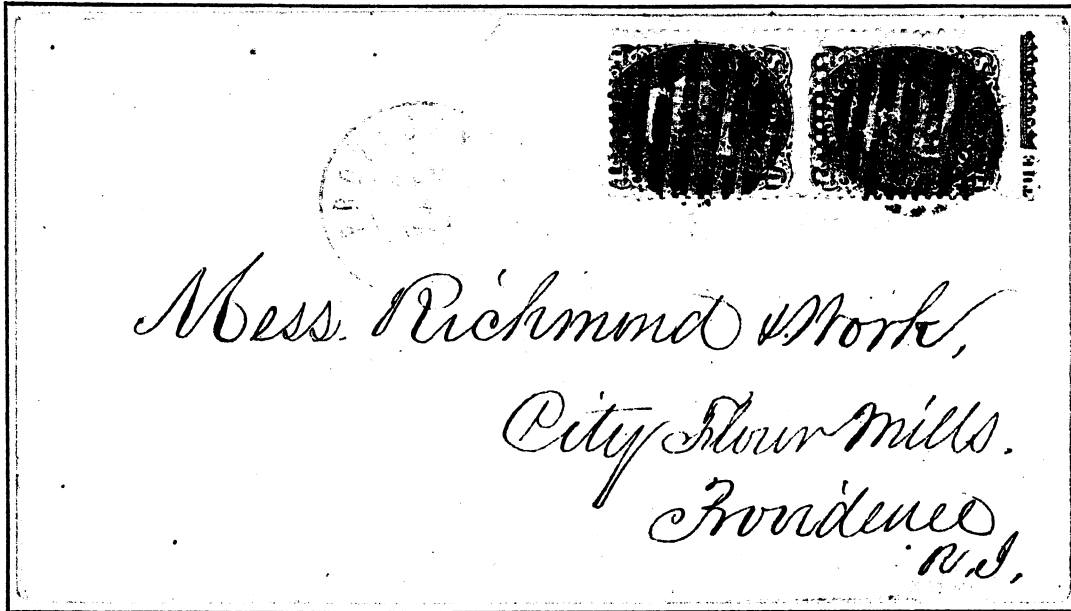 Mess. Richmond & Work,
City Flour Mills.
Providence
R.I.